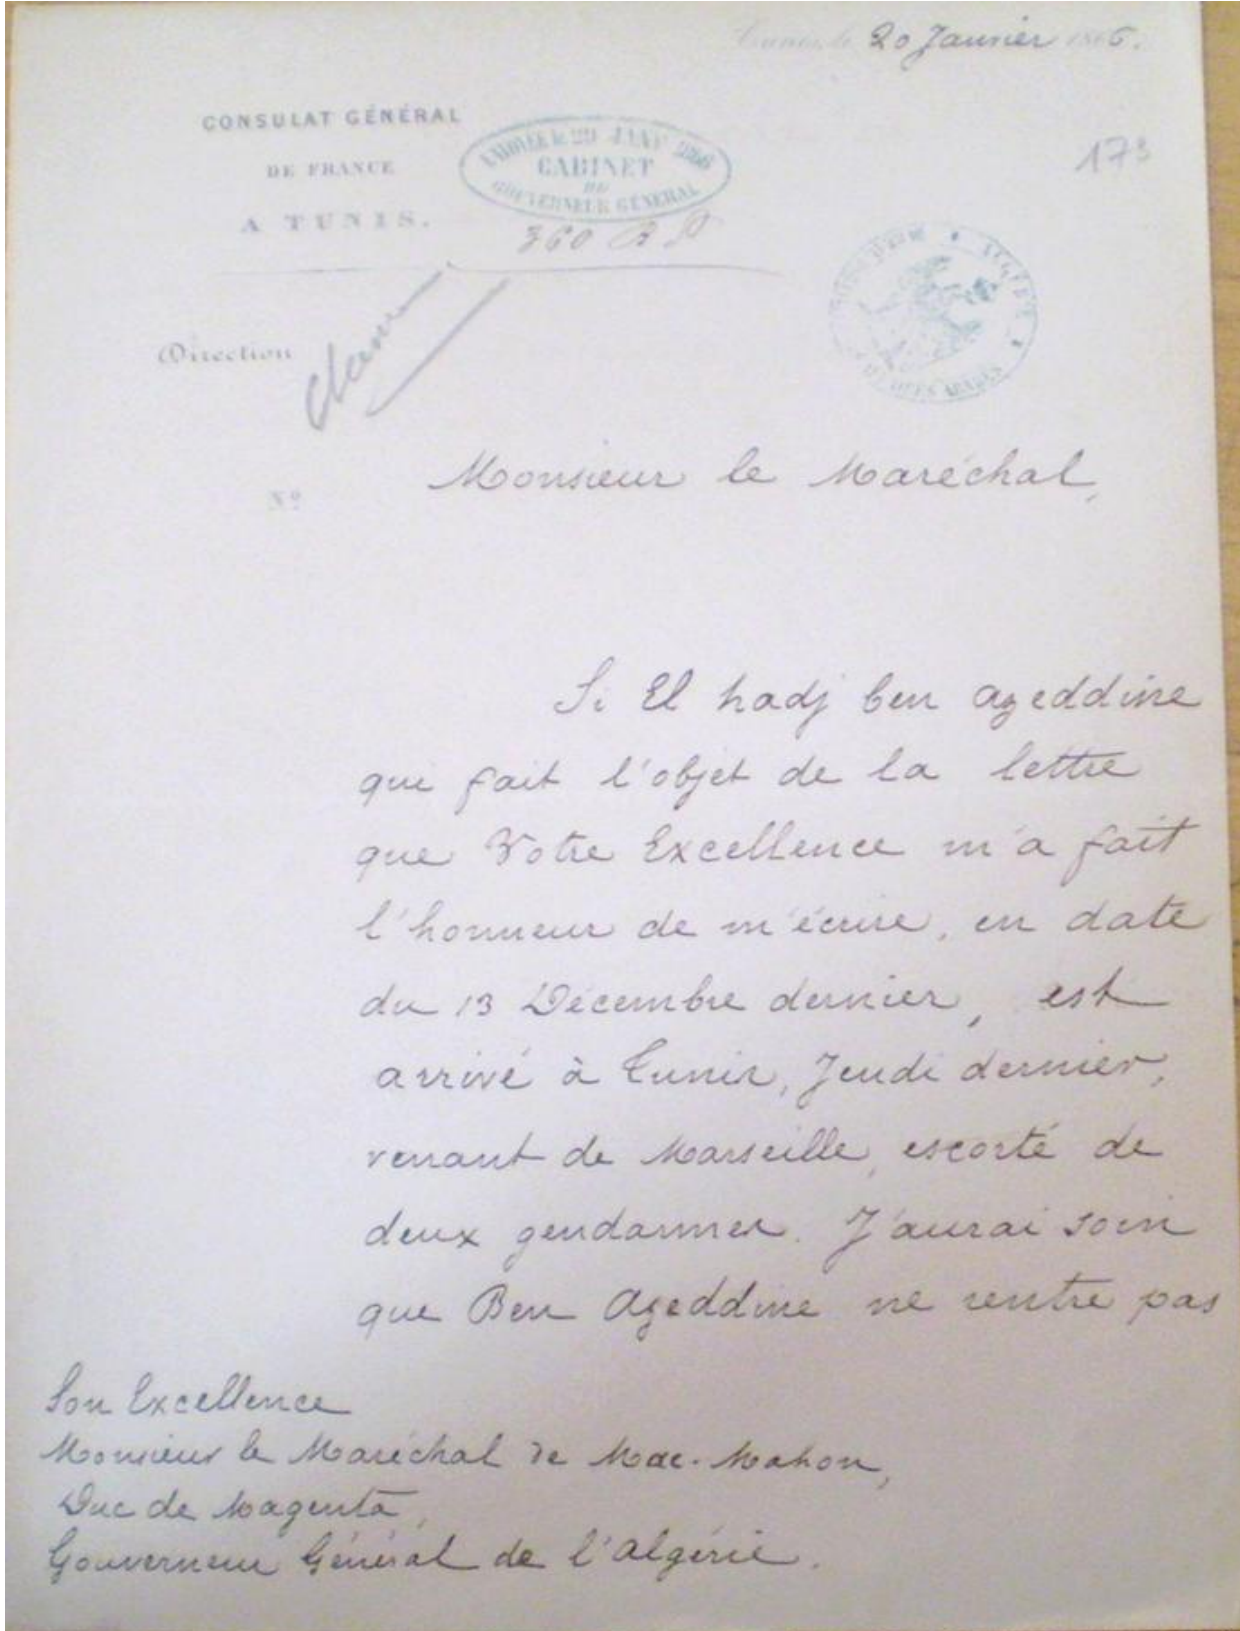 Tunis, le 20 Janvier 1866.
CONSULAT GÉNÉRAL
DE FRANCE
A TUNIS.
ENVOYÉE le 29 JANV 1866
CABINET
DU
GOUVERNEUR GÉNÉRAL
360
173
ALGÉRIE
ARABES
Direction
Nº
Monsieur le Maréchal,
Si El hadj ben azeddine
qui fait l'objet de la lettre
que Votre Excellence m'a fait
l'honneur de m'écrire, en date
du 13 Décembre dernier, est
arrivé à Tunis, Jeudi dernier,
venant de Marseille, escorté de
deux gendarmes. J'aurai soin
que Ben Azeddine ne rentre pas
Son Excellence
Monsieur le Maréchal de Mac-Mahon,
Duc de Magenta,
Gouverneur Général de l'Algérie.